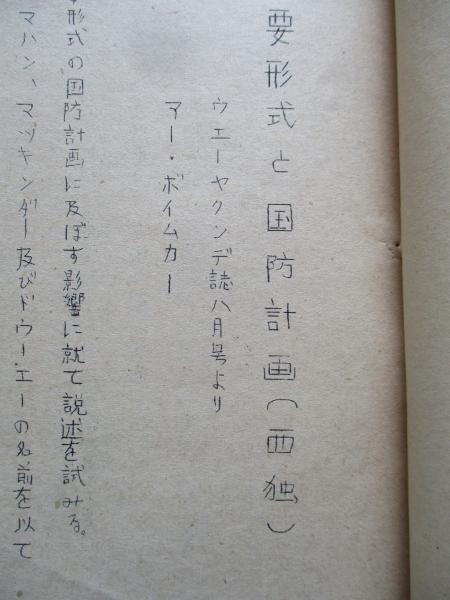 要形式と国防計画(西独)
ウエーヤクンデ誌八月号より
マー・ボイムカー
形式の国防計画に及ぼす影響に就て説述を試みる。
マハン、マツキンダー及びドウーエーの名前を以て